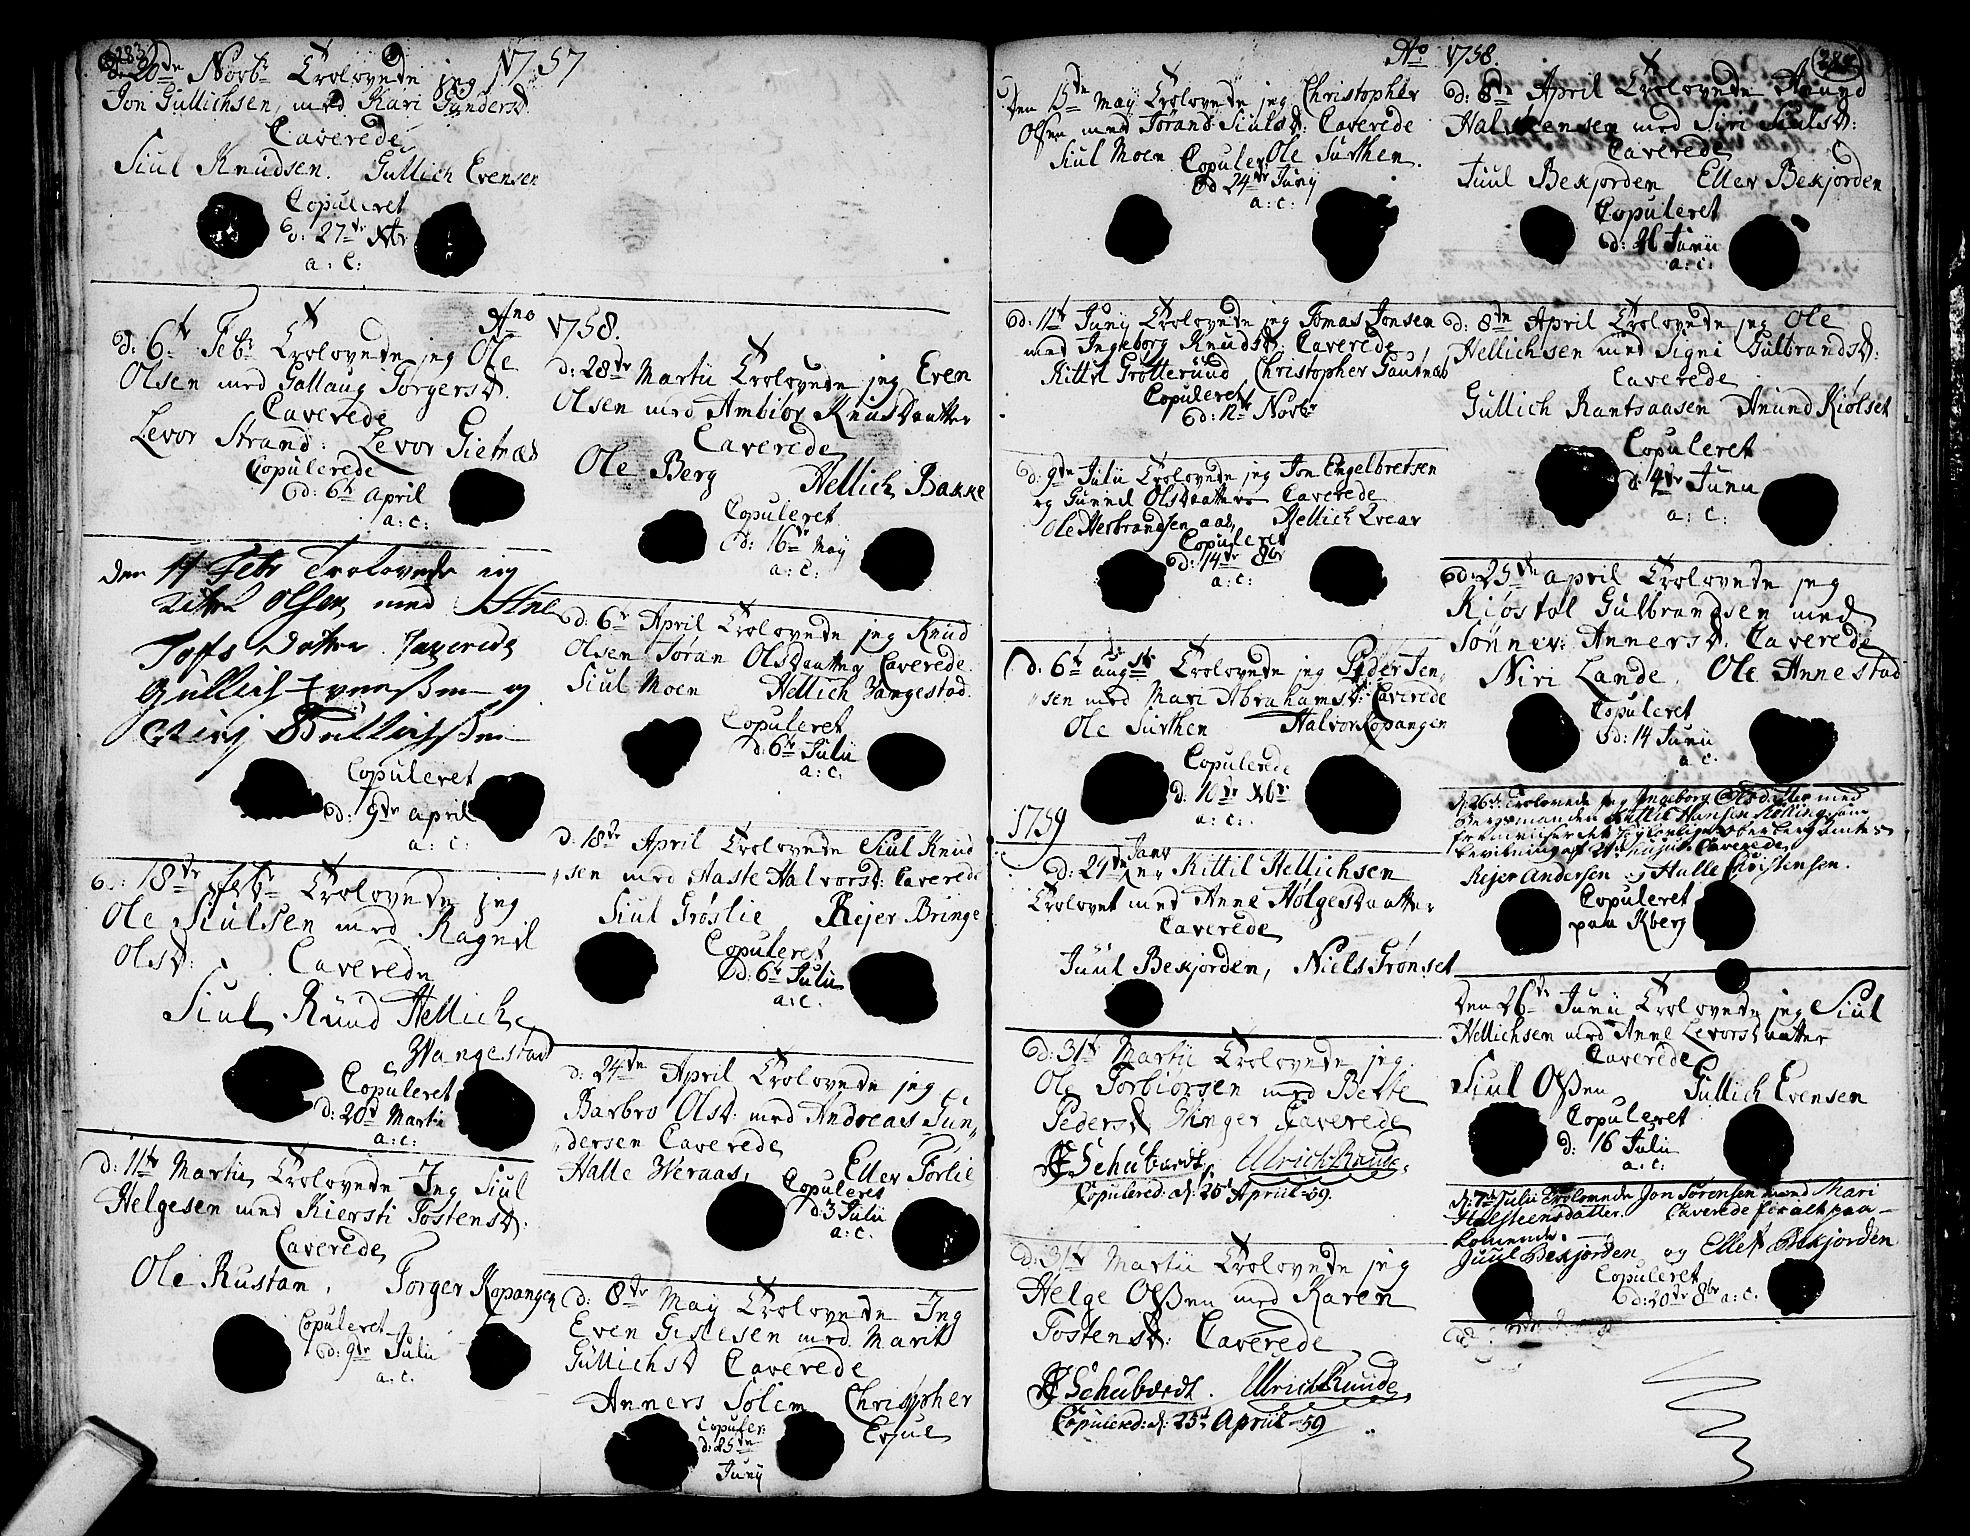 283
1757
d: 20de Novbr Trolovede jeg
Jon Gullichsen med Kari Gundersd.
Caverede
Siul Knudsen. Gullich Evensen
Copuleret
d: 27de Xbr
a: c:
Ano 1758.
d: 6te Febr Trolovede jeg Ole
Olsen med Gallaug Torgersd.
Caverede
Levor Strand: Levor Gietnæs
Copulerede
d: 6te April
a: c:
den 11 Febr Trolovede jeg
Kittel Olsen med
Tofs Datter. Caverede
Gullich Evensen og
Gullichsen
Copuleret
d: 9de april
a: c:
d: 18de Febr Trolovede jeg
Ole Siulsen med Ragnil
Olsd: Caverede
Siul Ruud Hellich
Vangestad
Copuleret
d: 20d Martii
a: c:
d: 11te Martii Trolovede Jeg Siul
Helgesen med Kiersti Tostensd.
Caverede
Ole Rustan, Torger Kopangen
Copuleret
d: 9de Julii
a: c.
d: 28de Martii Trolovede jeg Even
Olsen med Ambior Knusdaatter
Caverede
Ole Berg Hellich Bakke
Copuleret
d: 16de May
a: c:
d: 6te April Trolovede jeg Knud
Olsen Jøran Olsdaatter Caverede
Siul Moen Hellich Vangestad.
Copuleret
d: 6te Julii
a: c:
d: 18de April Trolovede Siul Knud
sen med Aaste Halvorsd: Caverede
Siul Grøslie Rejer Bringe
Copuleret
d: 6te Julii
a: c.
d: 24de April Trolovede jeg
Barbro Olsd: med Andreas Gun
dersen Caverede
Halle Weraas, Eller Førlie
Copuleret
d: 3 Julii
a: c:
d: 8de May Trolovede Jeg
Even Gislesen med Marit
Gullichsd Caverede
Anners Solem Christopher
Copuler: Ejul
d: 25de
Junij
Ao 1758.
Den 15de May Trolovede jeg Christopher
Olsen med Jørand Siulsd: Caverede
Siul Moen Ole Surthen.
Copuler:
d 24de Junij
a: c:
d: 11te Junij Trolovede jeg Tomas Jonsen
med Ingeborg Knudsd: Caverede
Kittil Grötterud Christopher Gautnæs
Copuleret
d: 12te Novbr
d: 9de Julii Trolovede jeg Jon Engelbretsen
og Gunnil Olsdaatter Caverede
Ole Herbrandsen aas, Hellich Qvear
Copuleret
d: 14de 8br
a: c:
d: 6te augsti Trolovede jeg Peder Jen
sen med Mari Abrahamsd: Caverede
Ole Surthen Halvor Kopangen
Copulerede
d: 10de Xbr
a: c:
1759
d: 29de Janr Kittil Hellichsen
Trolovet med Anne Holgesdaatter
Caverede
Juul Bekjorden, Niels Grønset
d: 31te Martii Trolovede jeg
Ole Torbiørsen med Berte
Pedersd Slinger Caverede
Schubærdt, Ulrich Runde.
Copulered: d: 25t Apriil 59.
d: 31te Martii Trolovede jeg
Helge Olssen med Karen
Tostensd: Caverede
Schubærdt. Ulrich Runde
Copulered: d: 25t Apriil 59
d: 8de April Trolovede Anund
Halsteensen med Siri Siulsd:
Caverede
Juul Bekjorden Ellev Bekjorden
Copuleret
d: 21 Junii
a: c:
d: 8de April Trolovede jeg Ole
Hellichsen med Signi Gulbrandsd:
Caverede
Gullich Rantsaasen Anund Kiølset
Copuleret
d: 14de Junii
a: c.
d: 25de april Trolovede jeg
Kiøstol Gulbrandsen med
Sønnev: Annersd. Caverede
Niri Lande, Ole Annestad
Copuleret
d: 14 Junii
a: c:
d: 26d: Trolovede jeg Ingeborg Olsdatter med
Bergmanden Hansen
bevilning af Caverede
Rejer Andersen og Halle Christensen.
Copuleret
paa Kberg
Den 26de Junii Trolovede jeg Siul
Hellichsen med Anne Levorsdaatter
Caverede
Siul Olssen Gullich Evensen
Copuleret
d: 16 Julii
a: c:
d: 7de Julii Trolovede Jon Sørensen med Mari
Halsteensdatter. Caverede for alt paa-
komende.
Juul Bekjorden og Ellef Bekjorden
Copuleret
d: 20de 8br a: c.